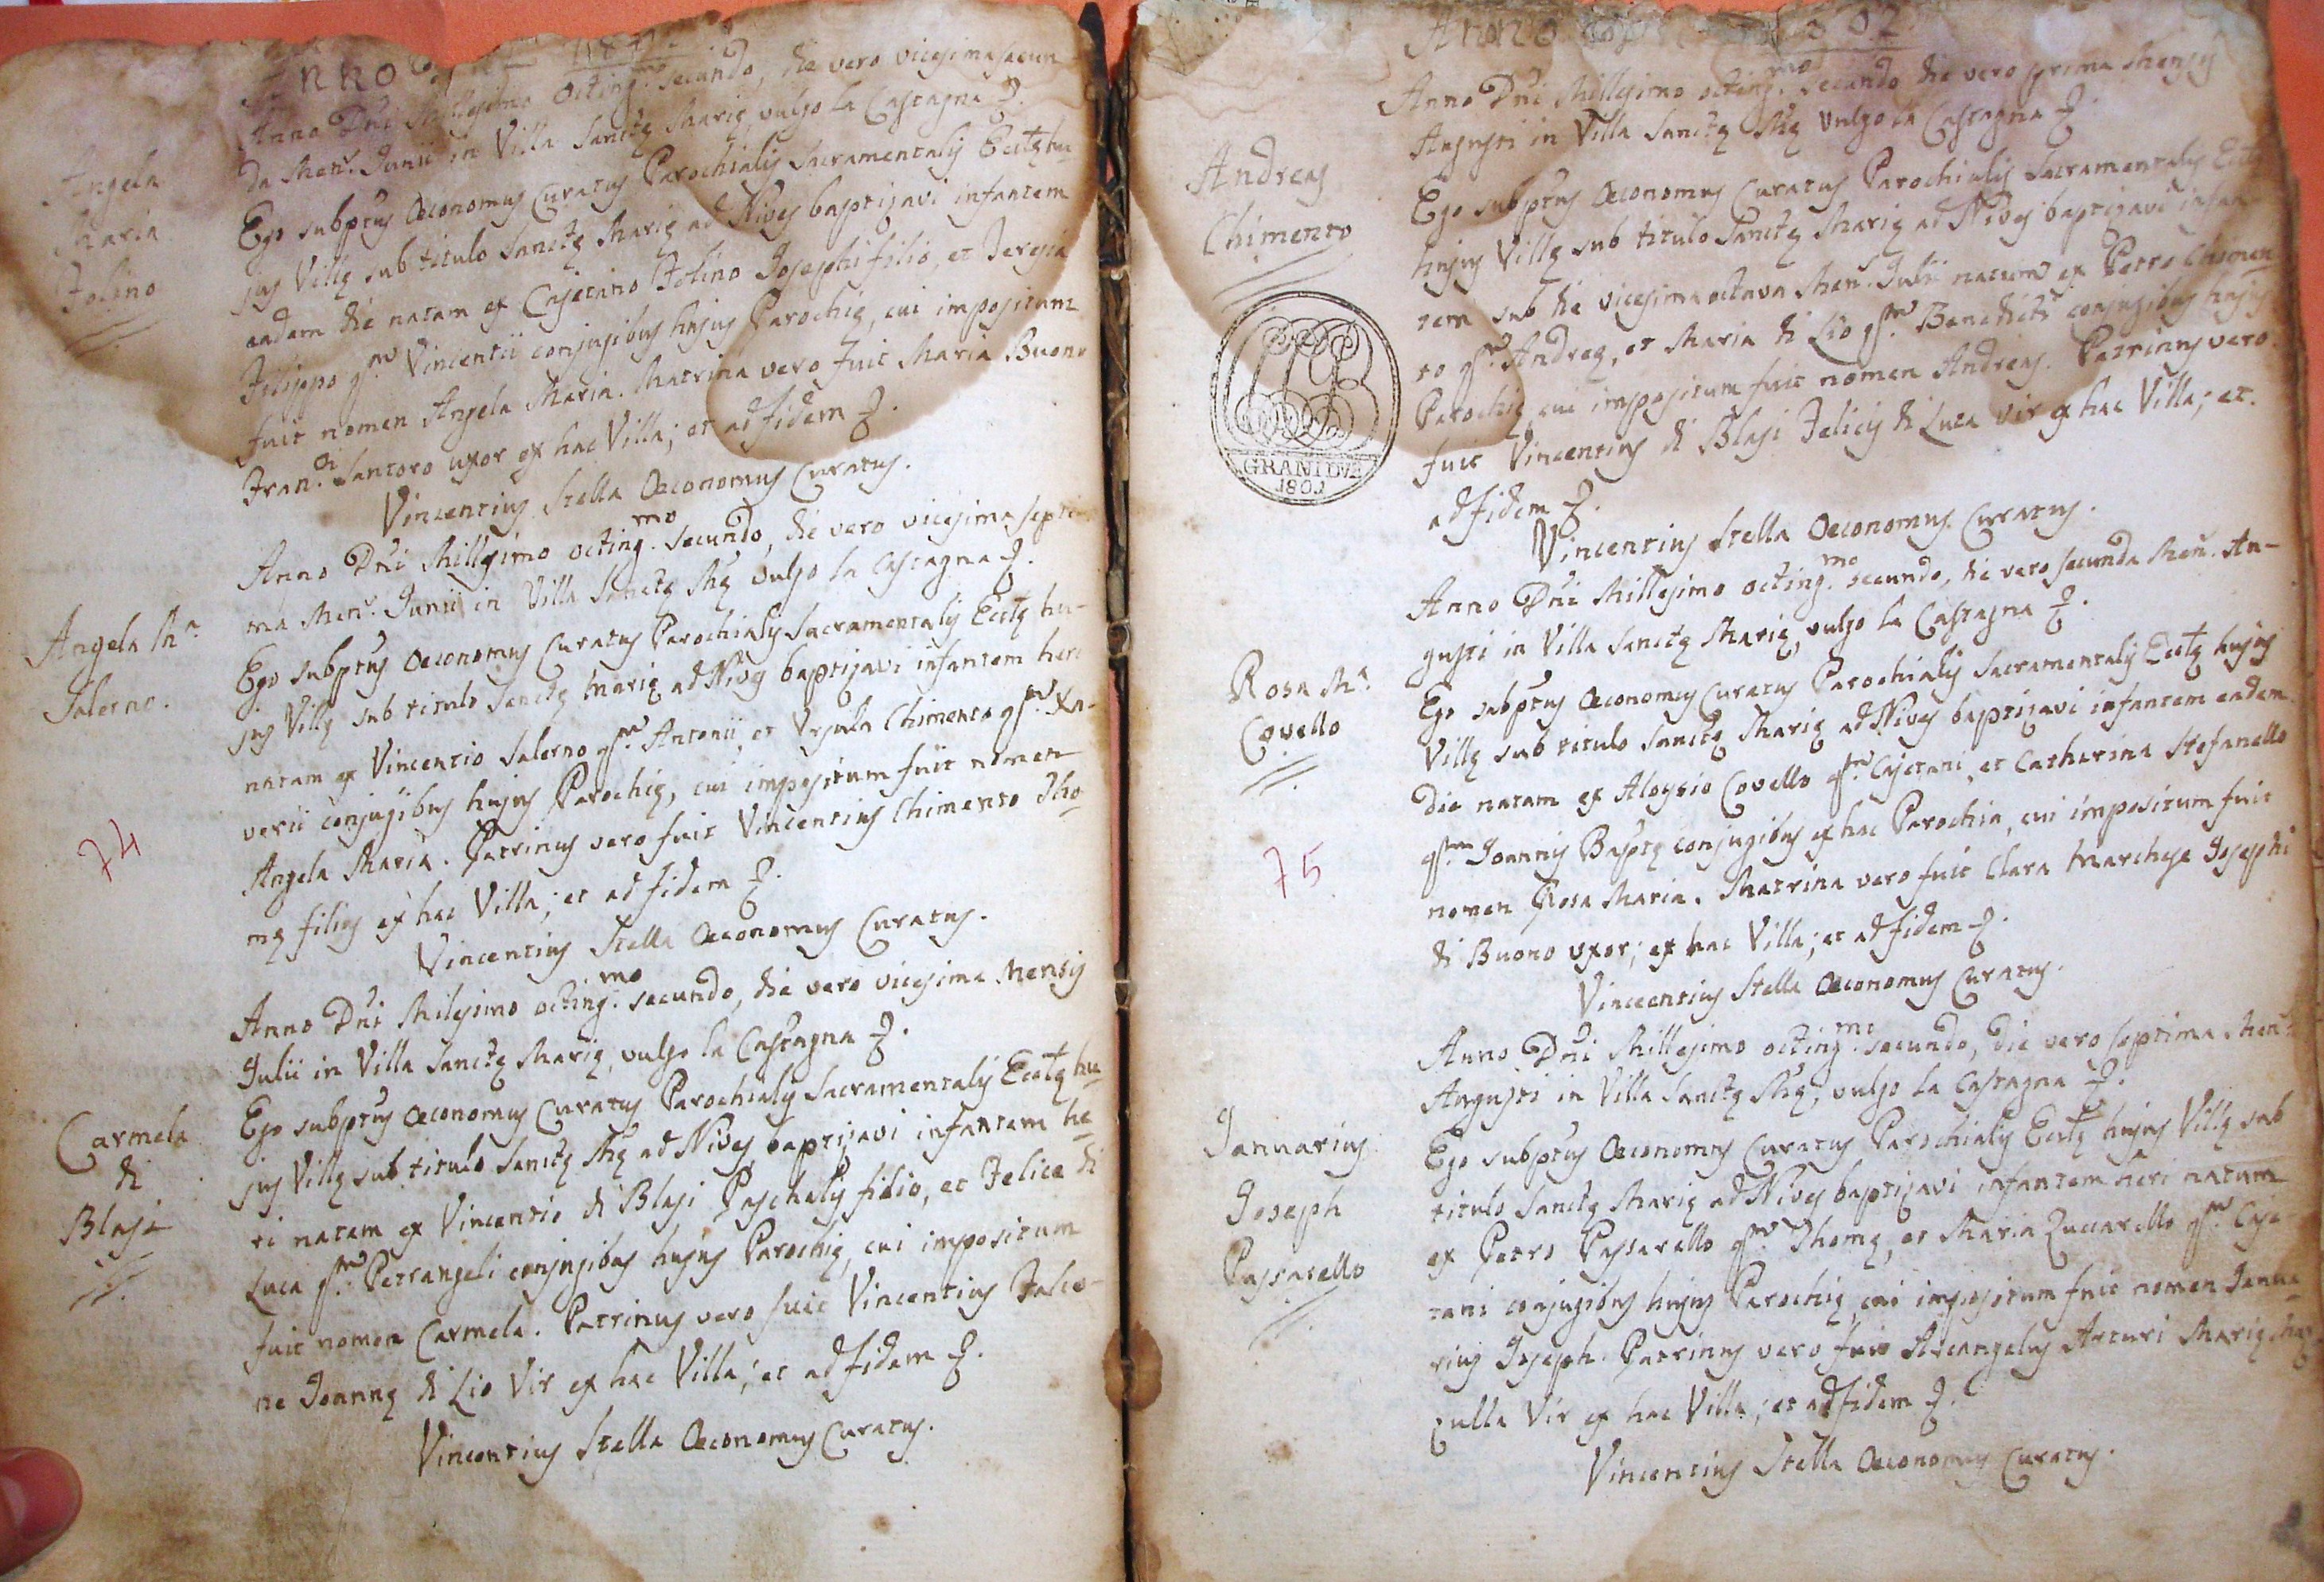 Anno
Anno Dñi Millesimo octing.mo secundo, die vero vicesimasecun
da Men.s Junii in Villa Sanctę Marię, vulgo la Castagna
Angela
Maria
Ego subptus Oeconomus Curatus Parochialis Sacramentalis Ecclę hu-
jus Villę sub titulo Sanctę Marię ad Nives baptizavi infantem
eadem die natam ex Cajetano Josephi filio, et Teresia
Filippo qm Vincentii conjugibus hujus Parochię, cui impositum
fuit nomen Angela Maria. Matrina vero fuit Maria Buono
Fran.ci Santoro uxor ex hac Villa; et ad fidem
Vincentius Stella Oeconomus Curatus.
Anno Dñi Millesimo octing.mo secundo, die vero vicesima septi-
ma Men.s Junii in Villa Sanctę Mę vulgo la Castagna
Angela M.a
Salerno.
Ego subptus Oeconomus Curatus Parochialis Sacramentalis Ecclę hu-
jus Villę sub titulo Sanctę Marię ad Nives baptizavi infantem heri
natam ex Vincentio Salerno qm Antonii, et Ursula Chimento qm Xa-
verii conjugibus hujus Parochię, cui impositum fuit nomen
Angela Maria. Patrinus vero fuit Vincentius Chimento Tho-
mę filius ex hac Villa; et ad fidem
74
Vincentius Stella Oeconomus Curatus.
Anno Dñi Milesimo octing.mo secundo, die vero vicesima Mensis
Julii in Villa Sanctę Marię, vulgo la Castagna
Carmela
di
Blasi
Ego subptus Oeconomus Curatus Parochialis Sacramentalis Ecclę hu-
jus Villę sub titulo Sanctę Mę ad Nives baptizavi infantem he-
ri natam ex Vincentio di Blasi Paschalis filio, et Felice di
Luca qm Petrangeli conjugibus hujus Parochię, cui impositum
fuit nomen Carmela. Patrinus vero fuit Vincentius Falco-
ne Joannę di Lio Vir ex hac Villa; et ad fidem
Vincentius Stella Oeconomus Curatus.
Anno 802
Anno Dñi Millesimo octing.mo secundo die vero prima Mensis
Augusti in Villa Sanctę Mę vulgo la Castagna
Andreas
Chimento
Ego subptus Oeconomus Curatus Parochialis Sacramentalis Ecclę
hujus Villę sub titulo Sanctę Marię ad Nives baptizavi infan-
tem sub die vicesima octava Men.s Julii natum ex Petro Chimen-
to qm Andreę, et Maria di Lio qm Benedicti conjugibus hujus
Parochię cui impositum fuit nomen Andreas. Patrinus vero
fuit Vincentius di Blasi Felicis di Luca vir ex hac Villa; et
ad fidem
GRANI DVE
1801
Vincentius Stella Oeconomus Curatus.
Anno Dñi Millesimo octing.mo secundo, die vero secunda Men.s Au-
gusti in Villa Sanctę Marię, vulgo la Castagna
Rosa M.a
Covello
Ego subptus Oeconomus Curatus Parochialis Sacramentalis Ecclę hujus
Villę sub titulo Sanctę Marię ad Nives baptizavi infantem eadem
die natam ex Aloysio Covello qm Cajetani, et Catharina Stefanello
qm Joannis Baptę conjugibus ex hac Parochia, cui impositum fuit
nomen Rosa Maria. Matrina vero fuit Clara Marchese Josephi
di Buono uxor; ex hac Villa; et ad fidem
75
Vincentius Stella Oeconomus Curatus.
Anno Dñi Millesimo octing.mo secundo, die vero septima Men.s
Augusti in Villa Sanctę Mę, vulgo la Castagna
Januarius
Joseph
Passarello
Ego subptus Oeconomus Curatus Parochialis Ecclę hujus Villę sub
titulo Sanctę Marię ad Nives baptizavi infantem heri natum
ex Petro Passarello qm Thomę, et Maria Zuccarello qm Caje-
tani conjugibus hujus Parochię cui impositum fuit nomen Janua-
rius Joseph. Patrinus vero fuit Arcangelus Arturi Marię
culla Vir ex hac Villa; et ad fidem
Vincentius Stella Oeconomus Curatus.